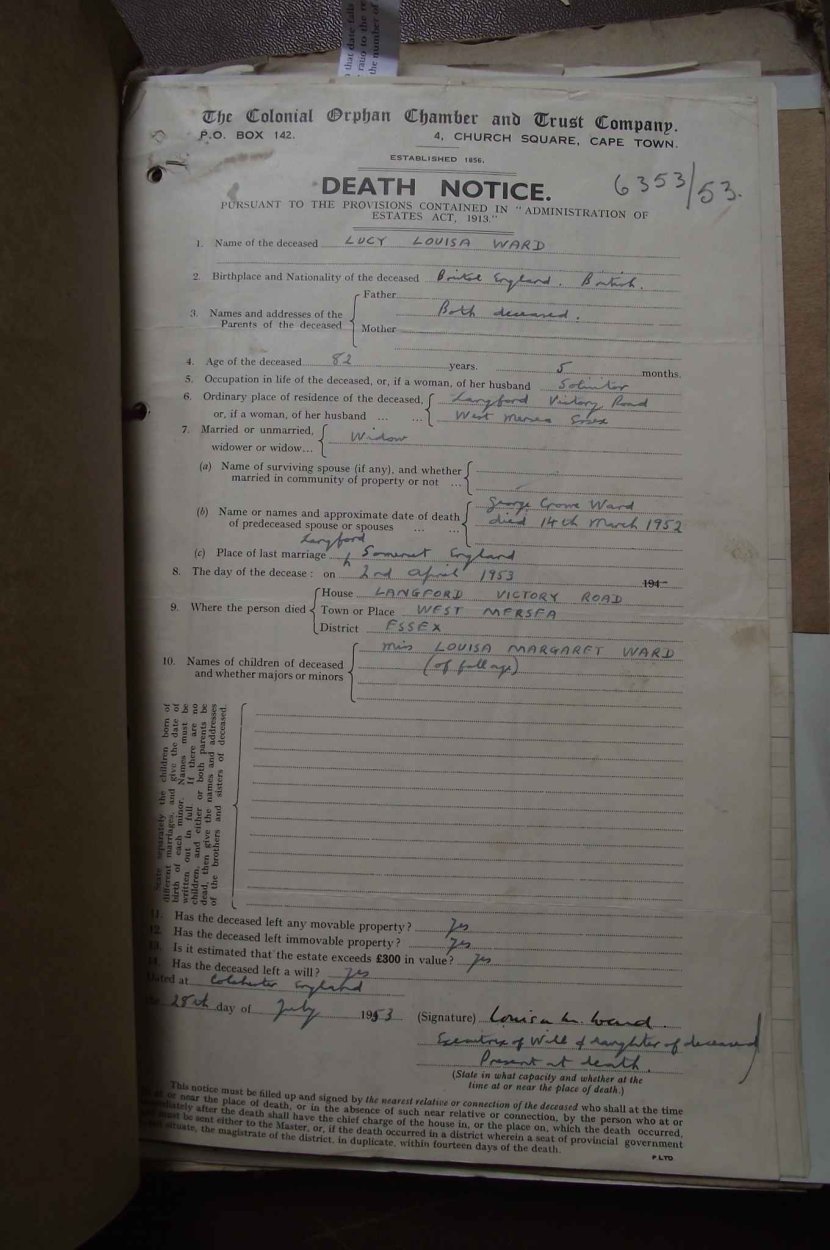 that date falls
ratio to the re
the number of
The Colonial Orphan Chamber and Trust Company.
P.O. BOX 142. 4, CHURCH SQUARE, CAPE TOWN.
ESTABLISHED 1856.
DEATH NOTICE. 6353/53.
PURSUANT TO THE PROVISIONS CONTAINED IN "ADMINISTRATION OF
ESTATES ACT, 1913."
1. Name of the deceased LUCY LOUISA WARD
2. Birthplace and Nationality of the deceased Bristol England. British.
3. Names and addresses of the Parents of the deceased
Father
Both deceased.
Mother
4. Age of the deceased 82 years. 5 months.
5. Occupation in life of the deceased, or, if a woman, of her husband Solicitor
6. Ordinary place of residence of the deceased, Langford Victory Road
or, if a woman, of her husband ... ... West Mersea Essex
7. Married or unmarried, widower or widow... Widow
(a) Name of surviving spouse (if any), and whether
married in community of property or not ...
(b) Name or names and approximate date of death George Crowe Ward
of predeceased spouse or spouses ... ... died 14th March 1952
Langford
(c) Place of last marriage Somerset England
8. The day of the decease: on 2nd April 1953 194
9. Where the person died
House LANGFORD VICTORY ROAD
Town or Place WEST MERSEA
District ESSEX
10. Names of children of deceased Miss LOUISA MARGARET WARD
and whether majors or minors (of full age)
State separately the children born of
different marriages, and give the date of
birth of each minor. Names must be
written out in full. If there are no
children, and either or both parents be
dead, then give the names and addresses
of the brothers and sisters of deceased.
11. Has the deceased left any movable property? Yes
12. Has the deceased left immovable property? Yes
13. Is it estimated that the estate exceeds £300 in value? Yes
14. Has the deceased left a will? Yes
Dated at Colchester England
28th day of July 1953 (Signature) Louisa M. Ward.
Executrix of Will & daughter of deceased
Present at death.
(State in what capacity and whether at the
time at or near the place of death.)
This notice must be filled up and signed by the nearest relative or connection of the deceased who shall at the time
or near the place of death, or in the absence of such near relative or connection, by the person who at or
immediately after the death shall have the chief charge of the house in, or the place on, which the death occurred,
must be sent either to the Master, or, if the death occurred in a district wherein a seat of provincial government
situate, the magistrate of the district, in duplicate, within fourteen days of the death.
P.LTD